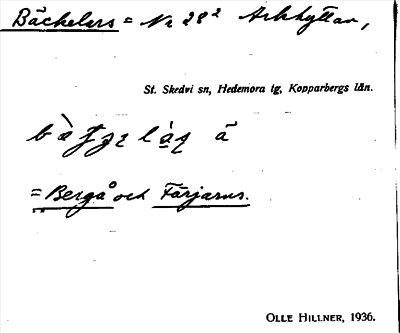 Bäckelers = Nr 28² Arkhyttan,
St. Skedvi sn, Hedemora tg, Kopparbergs län.
= Bergå och Färjarns.
OLLE HILLNER, 1936.